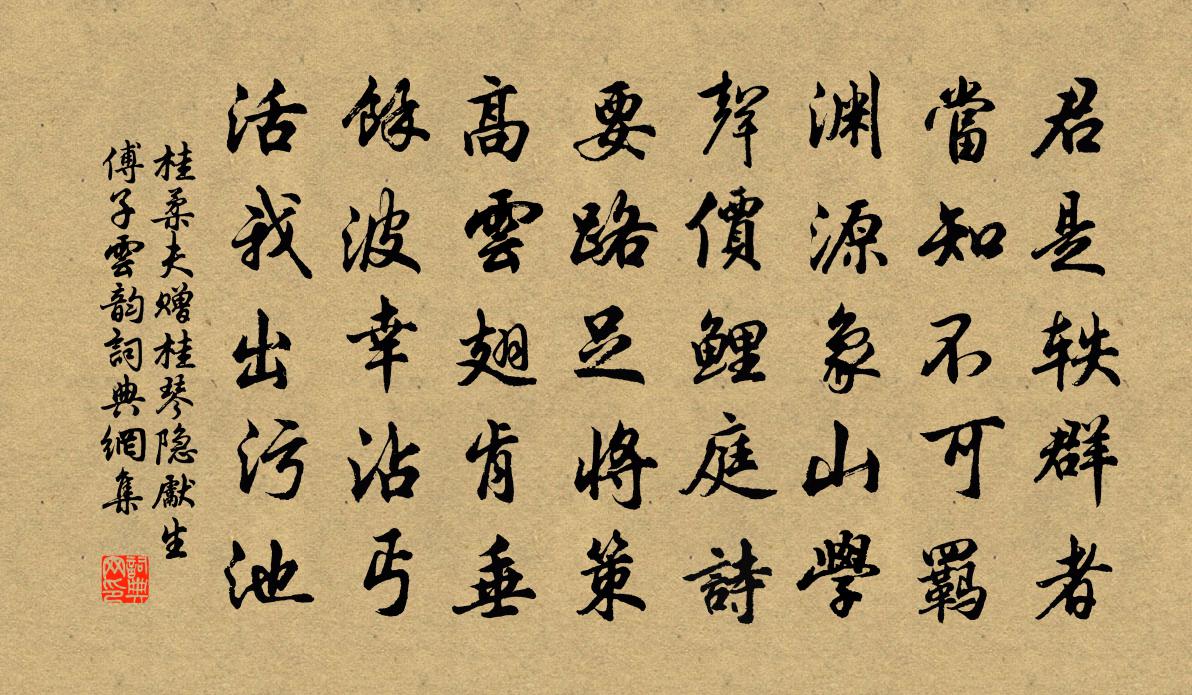 君是轶群者
當知不可羈
渊源象山學
聲價鯉庭詩
要路足將策
高雲翅肯垂
餘波幸沾丐
活我出污池
桂柔夫赠桂琴隐獻生
傅子雲韵詞典網集
詞典
网印